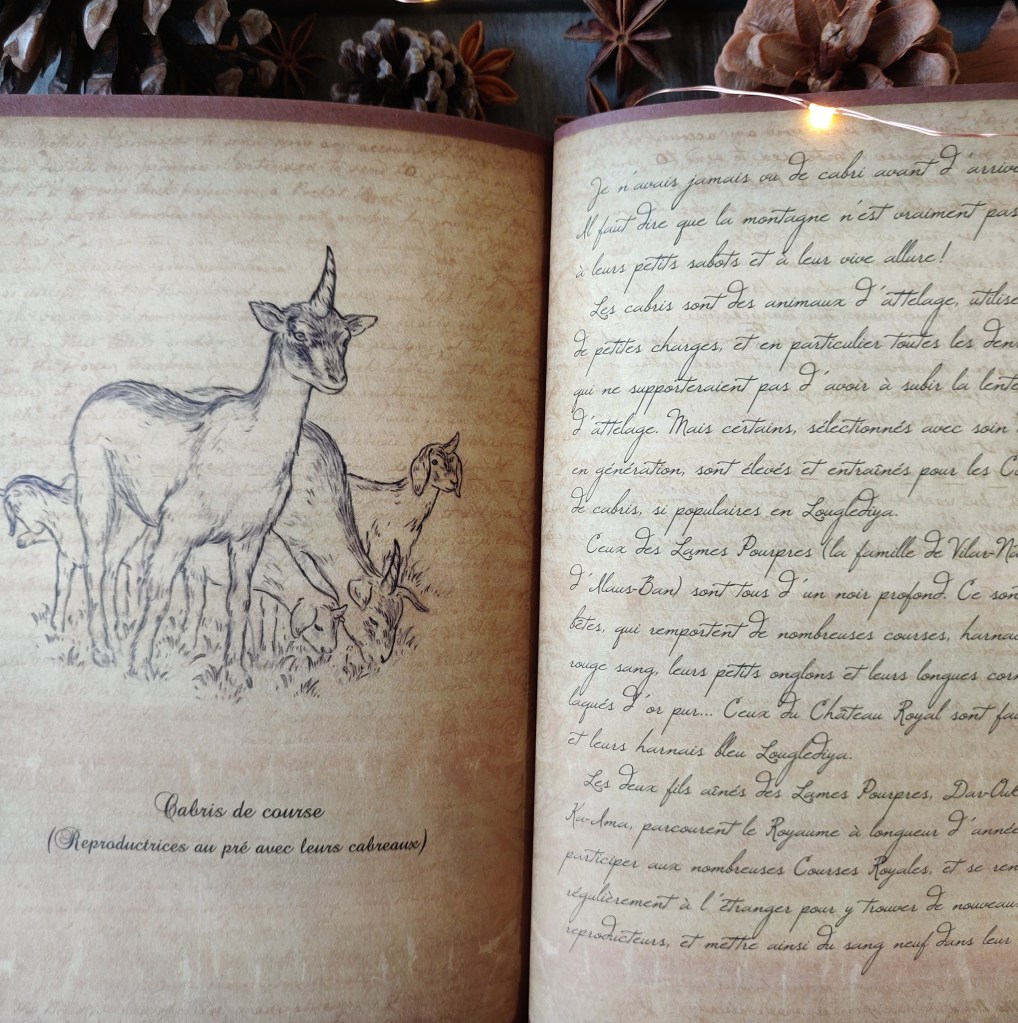 Cabris de course
(Reproductrices au pré avec leurs cabreaux)
Je n'avais jamais vu de cabri avant d'arrive
Il faut dire que la montagne n'est vraiment pas
à leurs petits sabots et à leur vive allure!
Les cabris sont des animaux d'attelage, utilise
de petites charges, et en particulier toutes les den
qui ne supporteraient pas d'avoir à subir la lente
d'attelage. Mais certains, sélectionnés avec soin
en génération, sont élevés et entraînés pour les Co
de cabris, si populaires en Louglediya.
Ceux des Lames Pourpres (la famille de Vilar-Na
d'Maus-Ban) sont tous d'un noir profond. Ce son
bêtes, qui remportent de nombreuses courses, harnac
rouge sang, leurs petits onglons et leurs longues corn
laqués d'or pur... Ceux du Château Royal sont fau
et leurs harnais bleu Louglediya.
Les deux fils aînés des Lames Pourpres, Dar-Ouk
Ka-Ama, parcourent le Royaume à longueur d'année
participer aux nombreuses Courses Royales, et se ren
régulièrement à l'étranger pour y trouver de nouveau
reproducteurs, et mettre ainsi du sang neuf dans leur